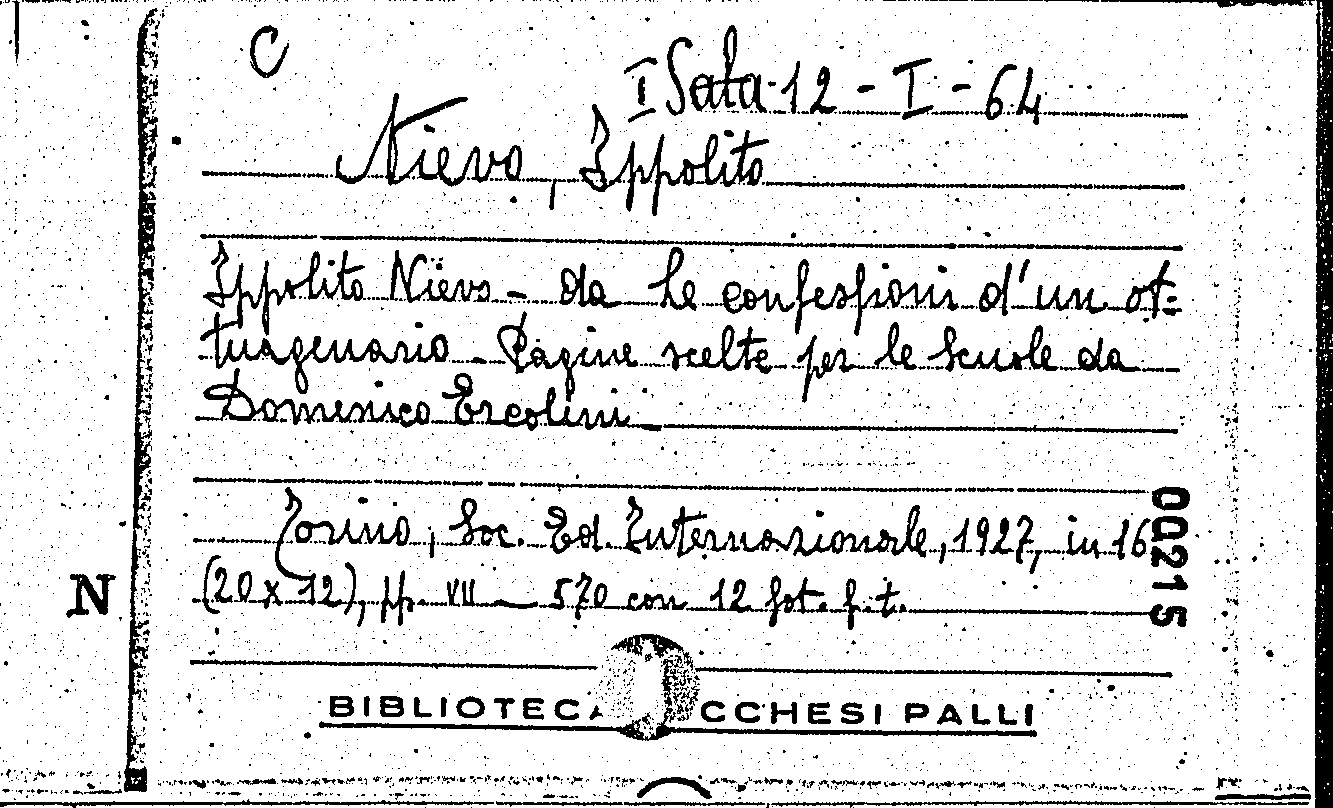 C
I Sala 12 - I - 64
Nievo, Ippolito
Ippolito Nievo - da Le confessioni d'un ot-
tuagenario - Pagine scelte per le Scuole da
Domenico Ercolini -
Torino, Soc. Ed. Internazionale, 1927, in 16
(20 x 12), pp. VII - 570 con 12 fot. f. t.
00215
N
BIBLIOTECA CCHESI PALLI